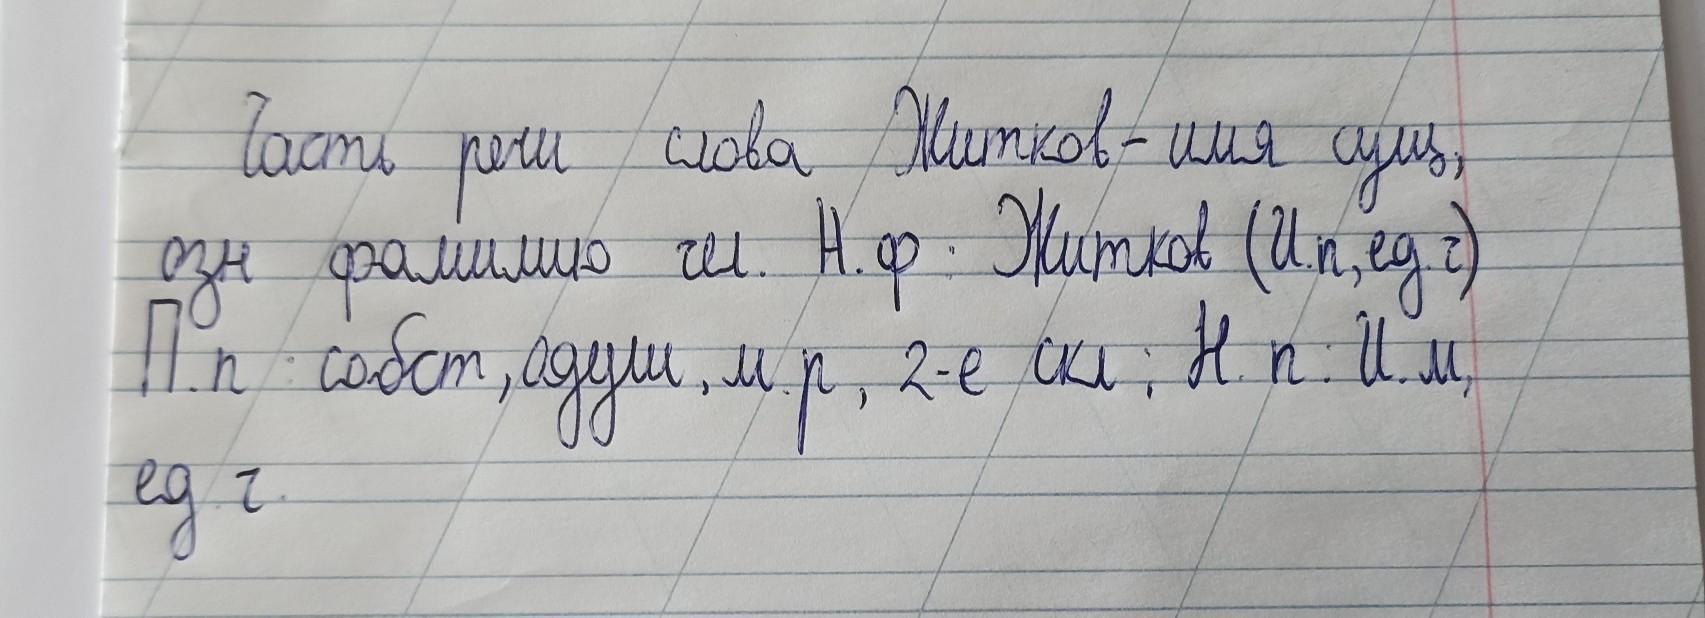 Часть речи слова Житков - имя сущ,
озн фамилию чел. Н.ф: Житков (И.п, ед.ч)
П.п: собст, одуш, м.р, 2-е скл; Н.п: И.м,
ед ч.